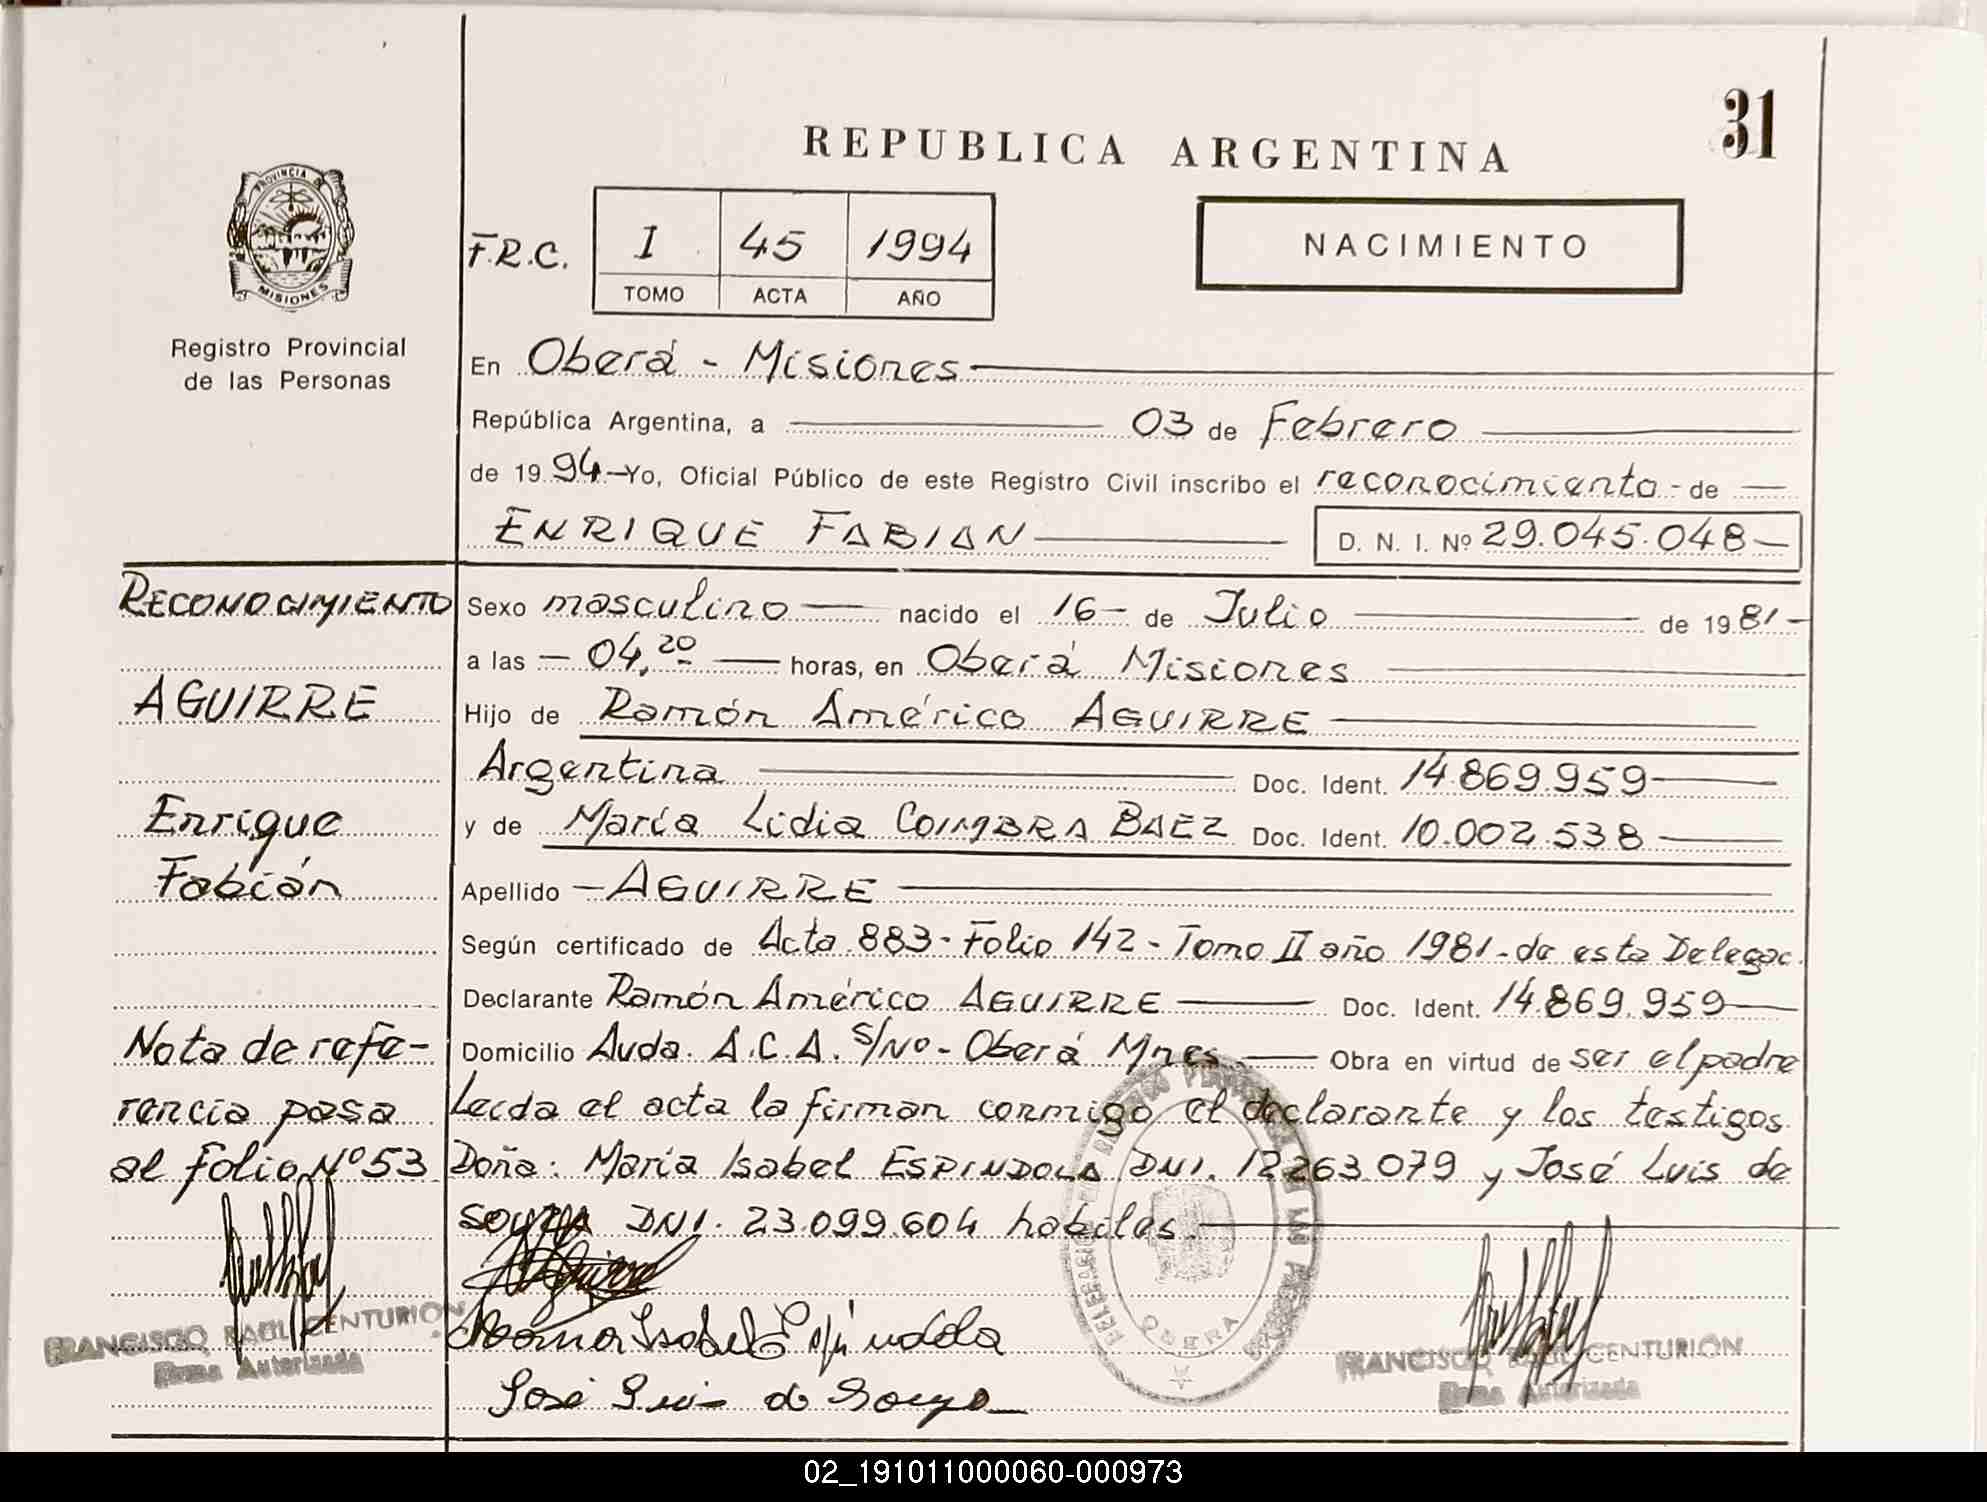 31
REPUBLICA ARGENTINA
PROVINCIA DE
MISIONES
Registro Provincial
de las Personas
F.R.C. I 45 1994
TOMO ACTA AÑO
NACIMIENTO
En Oberá - Misiones
República Argentina, a 03 de Febrero
de 1994 Yo, Oficial Público de este Registro Civil inscribo el reconocimiento - de
ENRIQUE FABIAN D. N. I. Nº 29.045.048
RECONOCIMIENTO
AGUIRRE
Enrique
Fabián
Nota de refe-
rencia pasa
al folio Nº 53
Sexo masculino nacido el 16 de Julio de 1981
a las 04,20 horas, en Oberá Misiones
Hijo de Ramón Américo AGUIRRE
Argentina Doc. Ident. 14.869.959
y de María Lidia COIMBRA BAEZ Doc. Ident. 10.002.538
Apellido AGUIRRE
Según certificado de Acta 883 - Folio 142 - Tomo II año 1981 - de esta Delegac.
Declarante Ramón Américo AGUIRRE Doc. Ident. 14.869.959
Domicilio Avda. A.C.A. S/Nº - Oberá Mnes. Obra en virtud de ser el padre
Leída el acta la firman conmigo el declarante y los testigos
Doña: María Isabel ESPINDOLA DNI. 12263.079 y José Luis de
SOUZA DNI. 23.099.604 habiles.
Aguirre
Maria Isabel Espindola
José Luis de Souza
OBERA
FRANCISCO RAUL CENTURIÓN
Firma Autorizada
FRANCISCO RAUL CENTURIÓN
Firma Autorizada
02_191011000060-000973